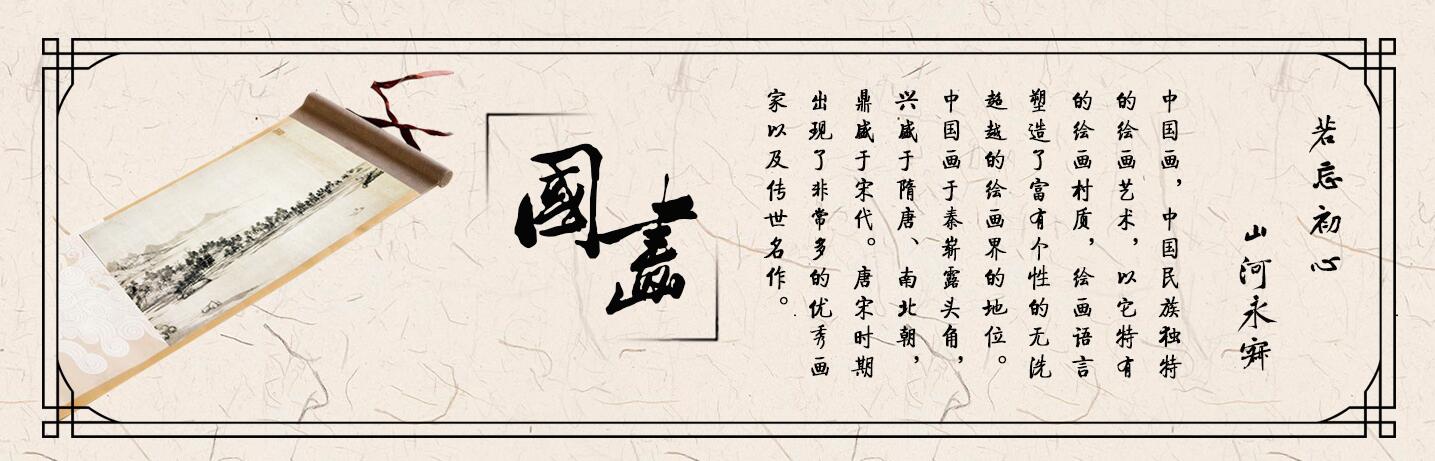 若忘初心
山河永寐
中国画，中国民族独特
的绘画艺术，以它特有
的绘画村质，绘画语言
塑造了富有个性的无洗
超越的绘画界的地位。
中国画于秦崭露头角，
兴盛于隋唐、南北朝，
鼎盛于宋代。唐宋时期
出现了非常多的优秀画
家以及传世名作。
國畫